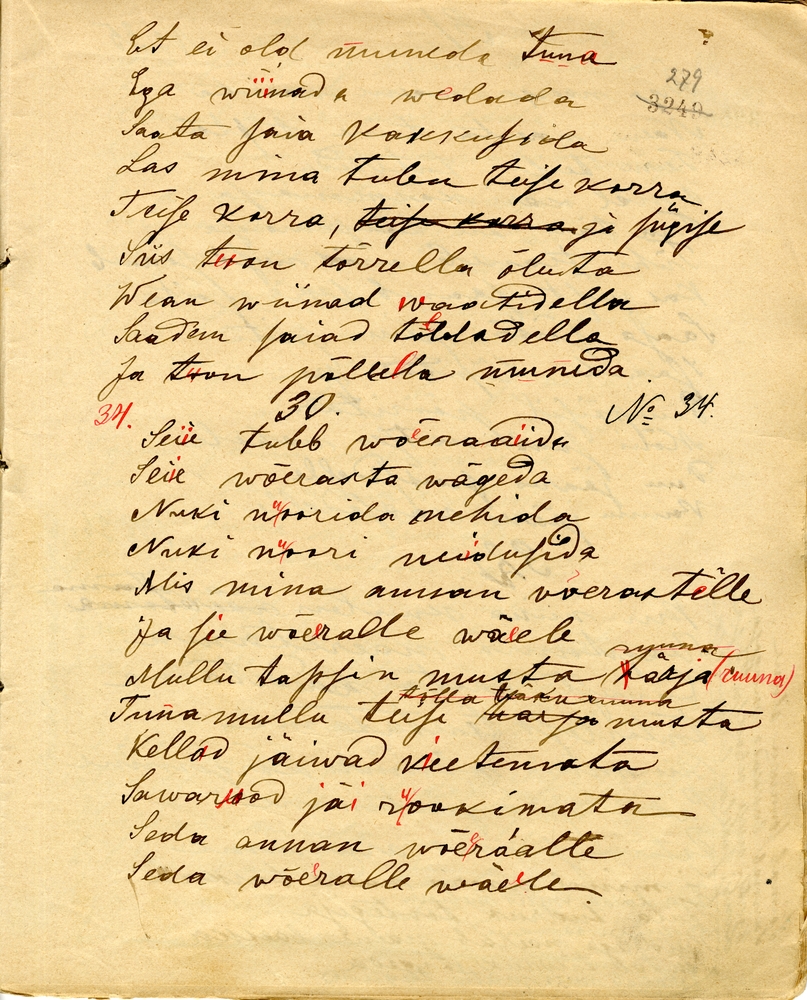 Et ei old muneda tuua
Ega wiinada wedada
279
3249
Saata saia kakkusida
Las mina tulen teise korra
Teise korra, teise korra ja sügise
Siis toon tõrrella õluta
Wean wiinad waatidella
Saadan saiad tõldadella
Ja toon põllella muneda.
34. 30. № 34.
Seie tuleb wõeraaida
Seie wõerasta wägeda
Nuki noorida mehida
Nuki noori neidusida
Mis mina annan võerastelle
Ja sie wõeralle wäele
ruuna
Mullu tapsin musta härja (ruuna)
ruuna
Tuna mullu teise harja musta
Kellad jäiwad keetemata
Sawarood jäi rookimata
Seda annan wõeraalle
Seda wõeralle wäele.